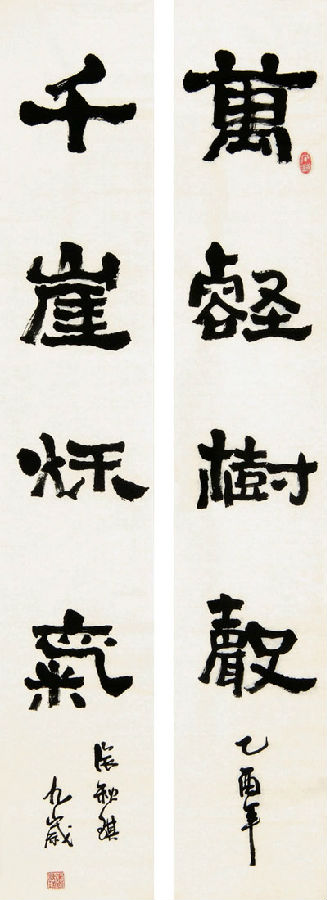 萬壑樹聲
乙酉年
千崖秌氣
九歲